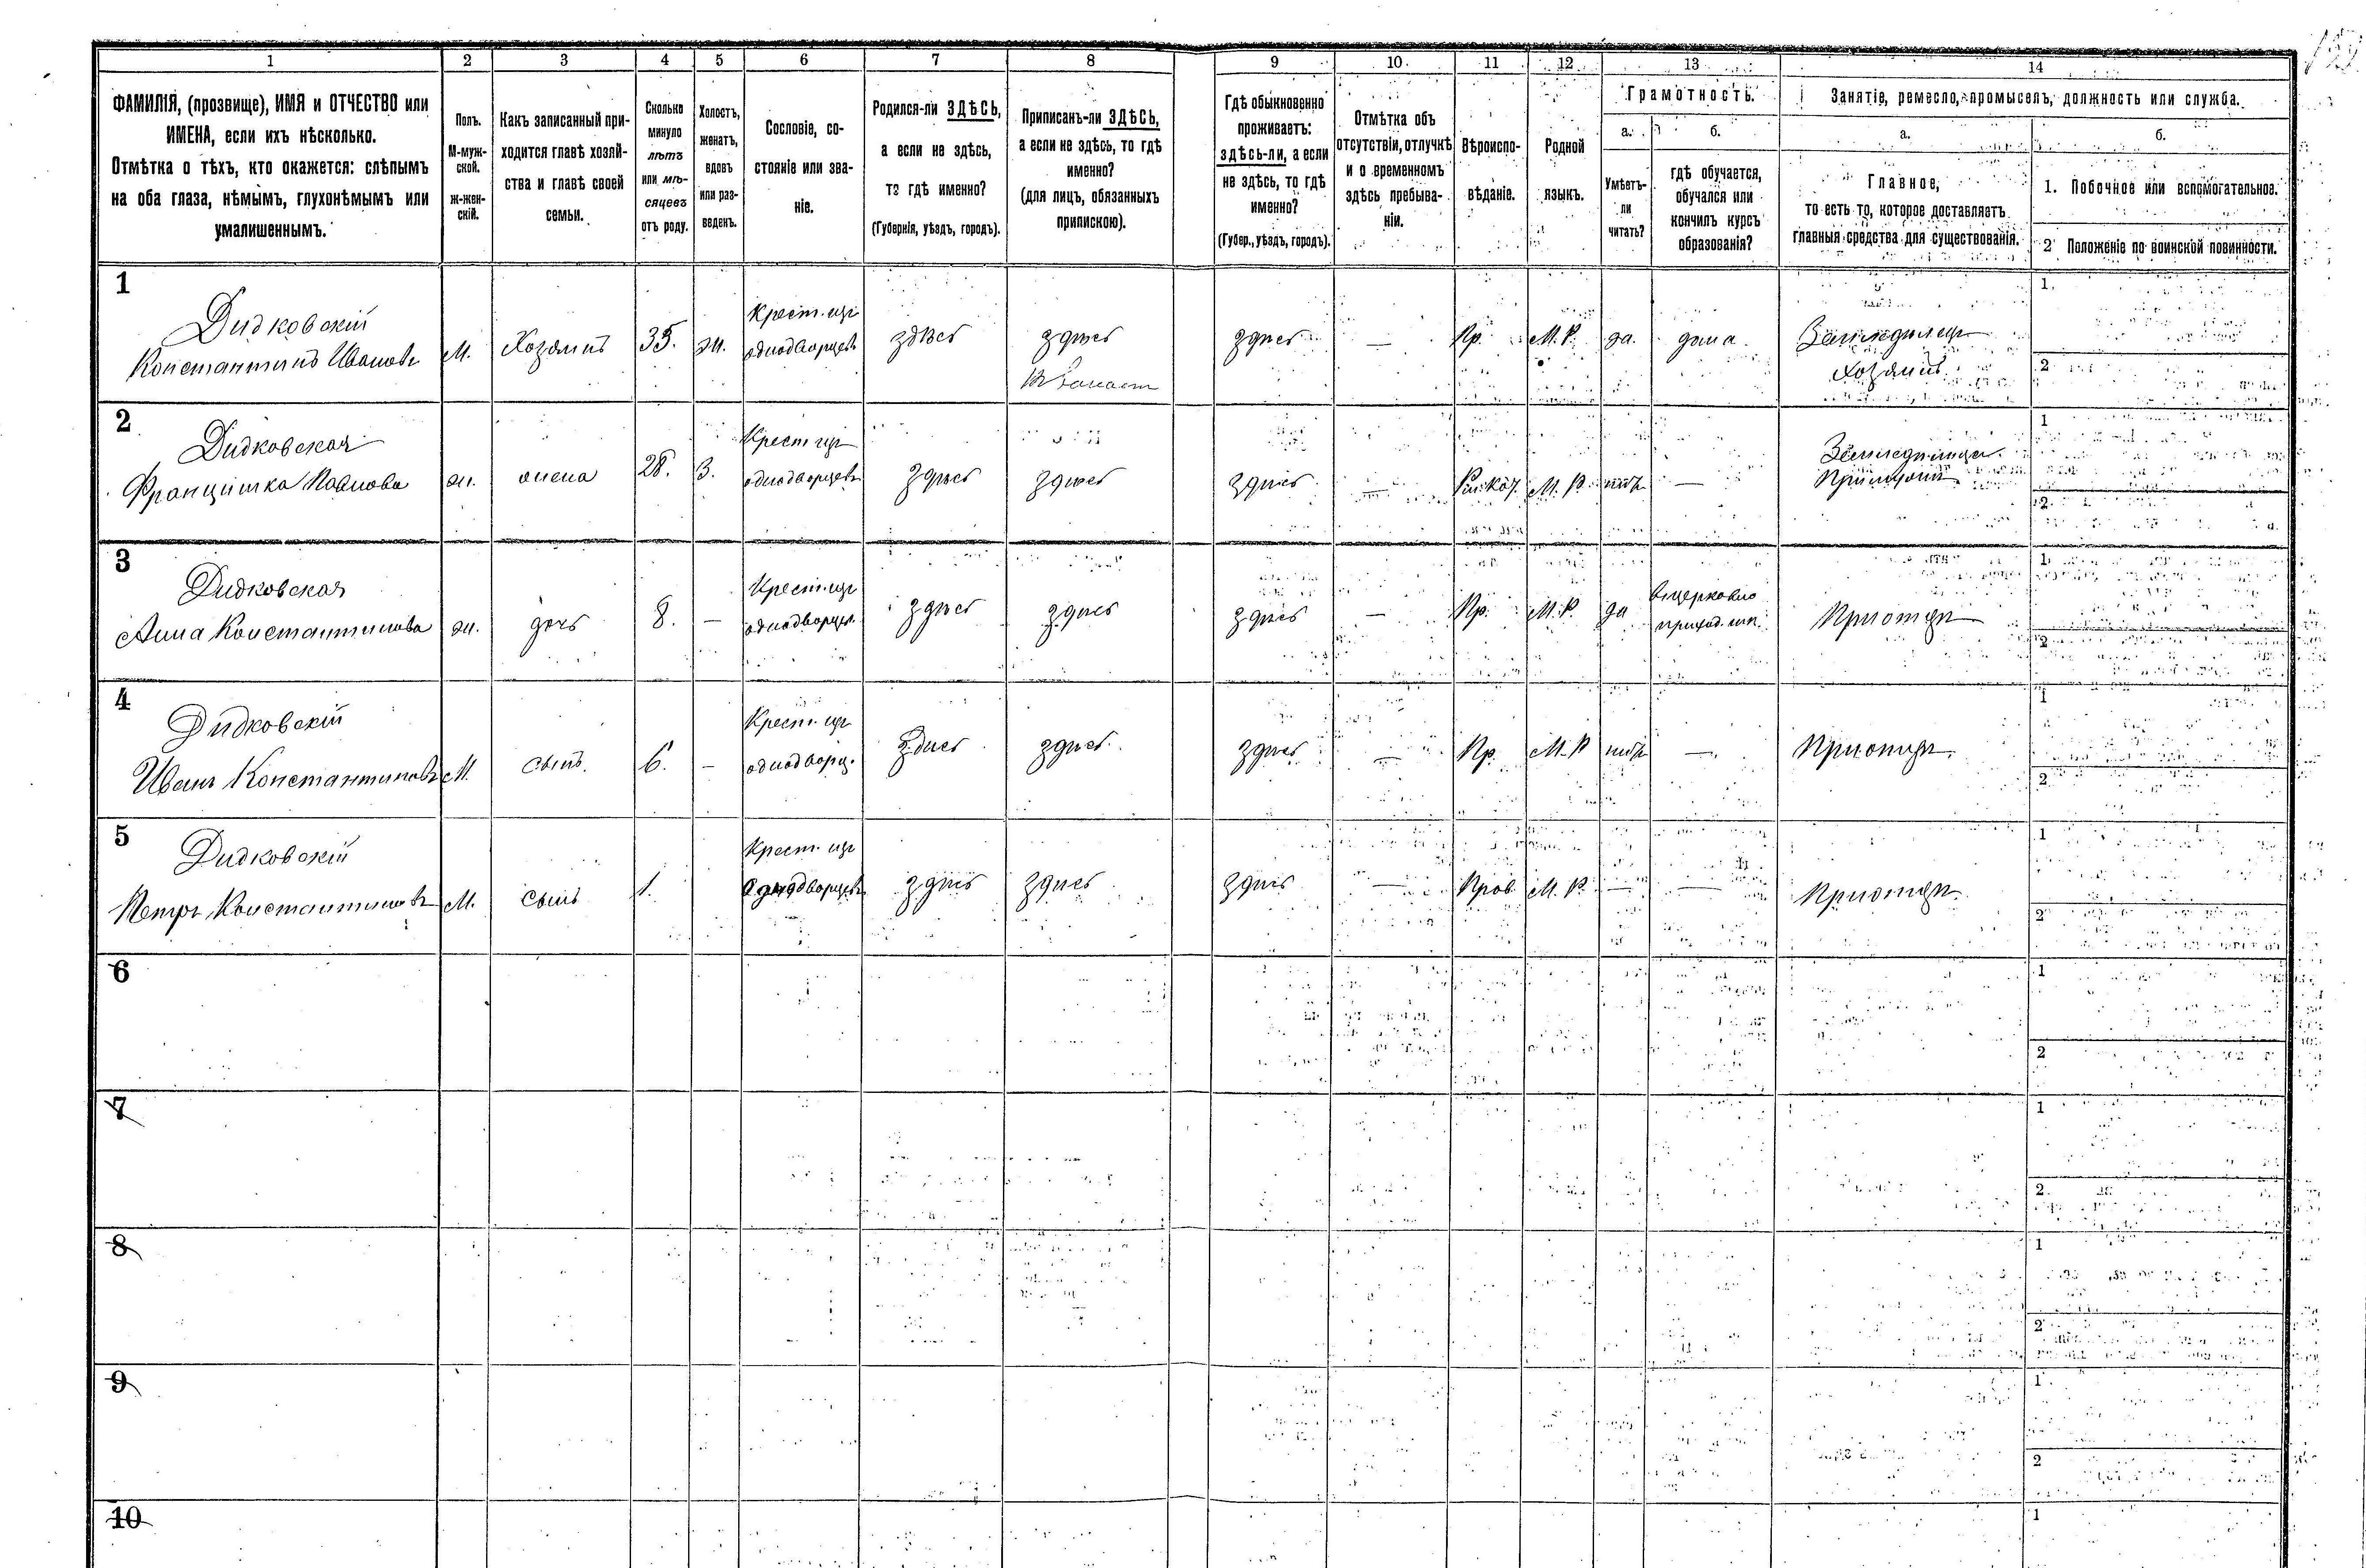 1 2 3 4 5 6 7 8 9 10. 11 12 13 14
ФАМИЛІЯ, (прозвище), ИМЯ и ОТЧЕСТВО или
ИМЕНА, если ихъ нѣсколько.
Отмѣтка о тѣхъ, кто окажется: слѣпымъ
на оба глаза, нѣмымъ, глухонѣмымъ или
умалишеннымъ.
Полъ.
М-муж-
ской.
ж-жен-
скій.
Какъ записанный при-
ходится главѣ хозяй-
ства и главѣ своей
семьи.
Сколько
минуло
лѣтъ
или мѣ-
сяцевъ
отъ роду.
Холостъ,
женатъ,
вдовъ
или раз-
веденъ.
Сословіе, со-
стояніе или зва-
ніе.
Родился-ли ЗДѢСЬ,
а если не здѣсь,
то гдѣ именно?
(Губернія, уѣздъ, городъ).
Приписанъ-ли ЗДѢСЬ,
а если не здѣсь, то гдѣ
именно?
(для лицъ, обязанныхъ
припискою).
Гдѣ обыкновенно
проживаетъ:
здѣсь-ли, а если
не здѣсь, то гдѣ
именно?
(Губер., уѣздъ, городъ).
Отмѣтка объ
отсутствіи, отлучкѣ
и о временномъ
здѣсь пребыва-
ніи.
Вѣроиспо-
вѣданіе.
Родной
языкъ.
Грамотность.
а. б.
Умѣетъ-
ли
читать?
гдѣ обучается,
обучался или
кончилъ курсъ
образованія?
Занятіе, ремесло, промыселъ, должность или служба.
а. б.
Главное,
то есть то, которое доставляетъ
главныя средства для существованія.
1. Побочное или вспомогательное.
2 Положеніе по воинской повинности.
1
Дидковскій
Константинъ Ивановъ
М.
Хозяинъ
35.
ж.
Крест. изъ
однодворцевъ
здѣсь
здѣсь
здѣсь
—
Пр.
М. Р.
да.
дома.
Земледѣлец
хозяинъ
1.
2
2
Дидковская
Францишка Павлова
ж.
жена
28.
З.
Крест изъ
однодворцевъ
здѣсь
здѣсь
здѣсь
—
Рим.кат.
М. Р.
нѣтъ
—
При мужѣ
1
2
3
Дидковская
Анна Константинова
ж.
дочь
8.
—
Крест. изъ
однодворцев.
здѣсь
здѣсь
здѣсь
—
Пр.
М. Р.
да
в церковно
приход. шк.
При отцѣ
1
2
4
Дидковскій
Иванъ Константиновъ
М.
сынъ.
6.
—
Крест. изъ
однодворц.
здѣсь
здѣсь
здѣсь
—
Пр.
М. Р
нѣтъ
—
При отцѣ.
1
2
5
Дидковскій
Петръ Константиновъ
М.
сынъ
1.
Крест. изъ
однодворцевъ
здѣсь
здѣсь
здѣсь
—
Прав.
М. Р.
—
—
При отцѣ.
1
2
6
1
2
7
1
2
8
1
2
9
1
2
10
1